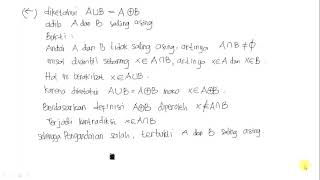 (←) diketahui A∪B = A⊕B
adib A dan B saling asing
Bukti :
Andai A dan B tidak saling asing, artinya A∩B ≠ ∅
misal diambil sebarang x∈A∩B, artinya x∈A dan x∈B.
Hal ini berakibat x∈A∪B.
karena diketahui A∪B = A⊕B maka x∈A⊕B.
Berdasarkan definisi A⊕B diperoleh x∉A∩B
Terjadi kontradiksi x∈A∩B
sehingga Pengandaian salah, terbukti A dan B saling asing